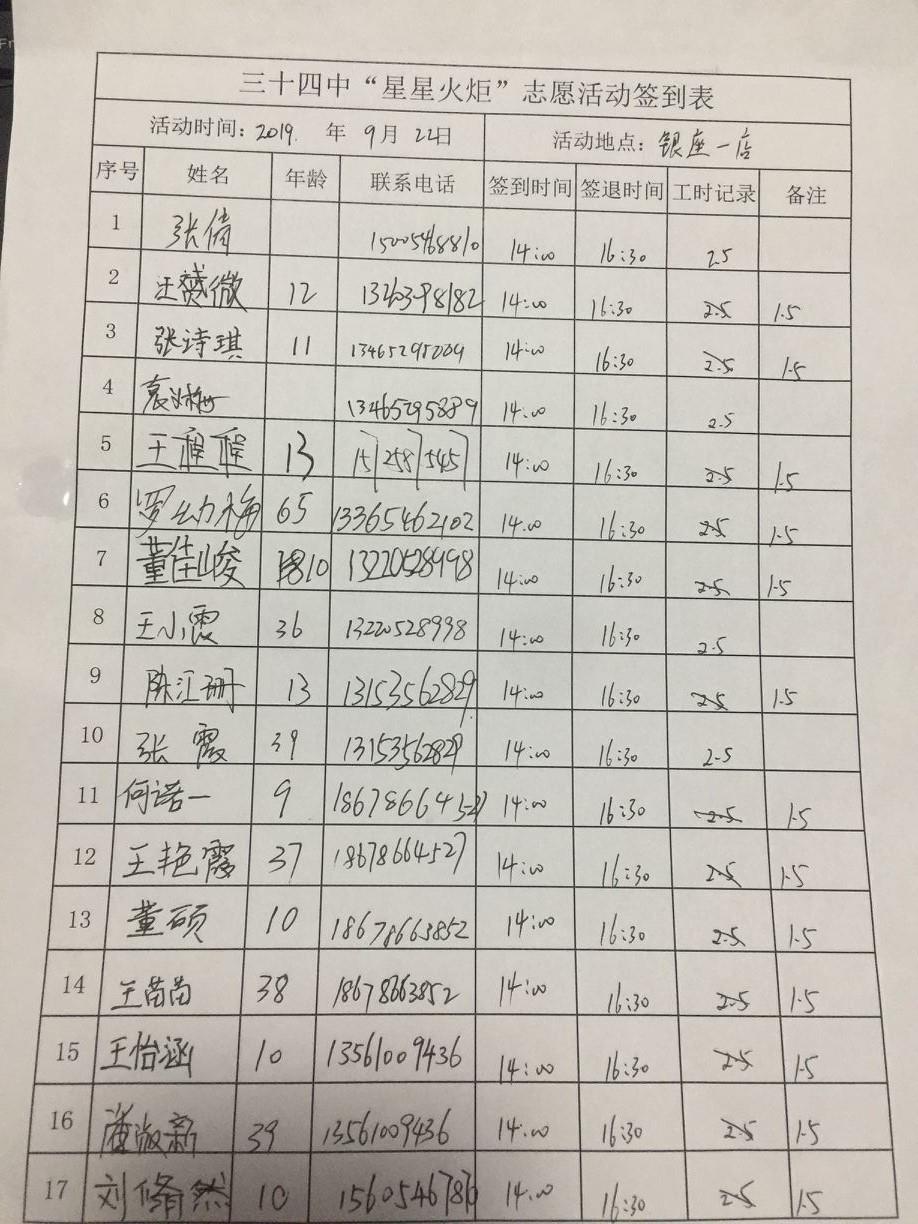 三十四中“星星火炬”志愿活动签到表
活动时间：2019. 年 9月 22日 活动地点：银座一店
序号 姓名 年龄 联系电话 签到时间 签退时间 工时记录 备注
1 张倩 15005468810 14:00 16:30 2.5
2 王 微 12 14:00 16:30 2.5 1.5
3 张诗琪 11 13465295009 14:00 16:30 2.5 1.5
4 袁 13465295889 14:00 16:30 2.5
5 王 13 15725877545 14:00 16:30 2.5 1.5
6 罗幼梅 65 13365462102 14:00 16:30 2.5 1.5
7 董佳峻 10 13220528998 14:00 16:30 2.5 1.5
8 王小霞 36 13220528998 14:00 16:30 2.5
9 陈江珊 13 13153562829 14:00 16:30 2.5 1.5
10 张霞 39 13153562829 14:00 16:30 2.5
11 何诺一 9 18678664527 14:00 16:30 2.5 1.5
12 王艳霞 37 18678664527 14:00 16:30 2.5 1.5
13 董硕 10 18678663852 14:00 16:30 2.5 1.5
14 王苗苗 38 18678663852 14:00 16:30 2.5 1.5
15 王怡涵 10 13561009436 14:00 16:30 2.5 1.5
16 39 13561009436 14:00 16:30 2.5 1.5
17 刘修然 10 15605467876 14:00 16:30 2.5 1.5